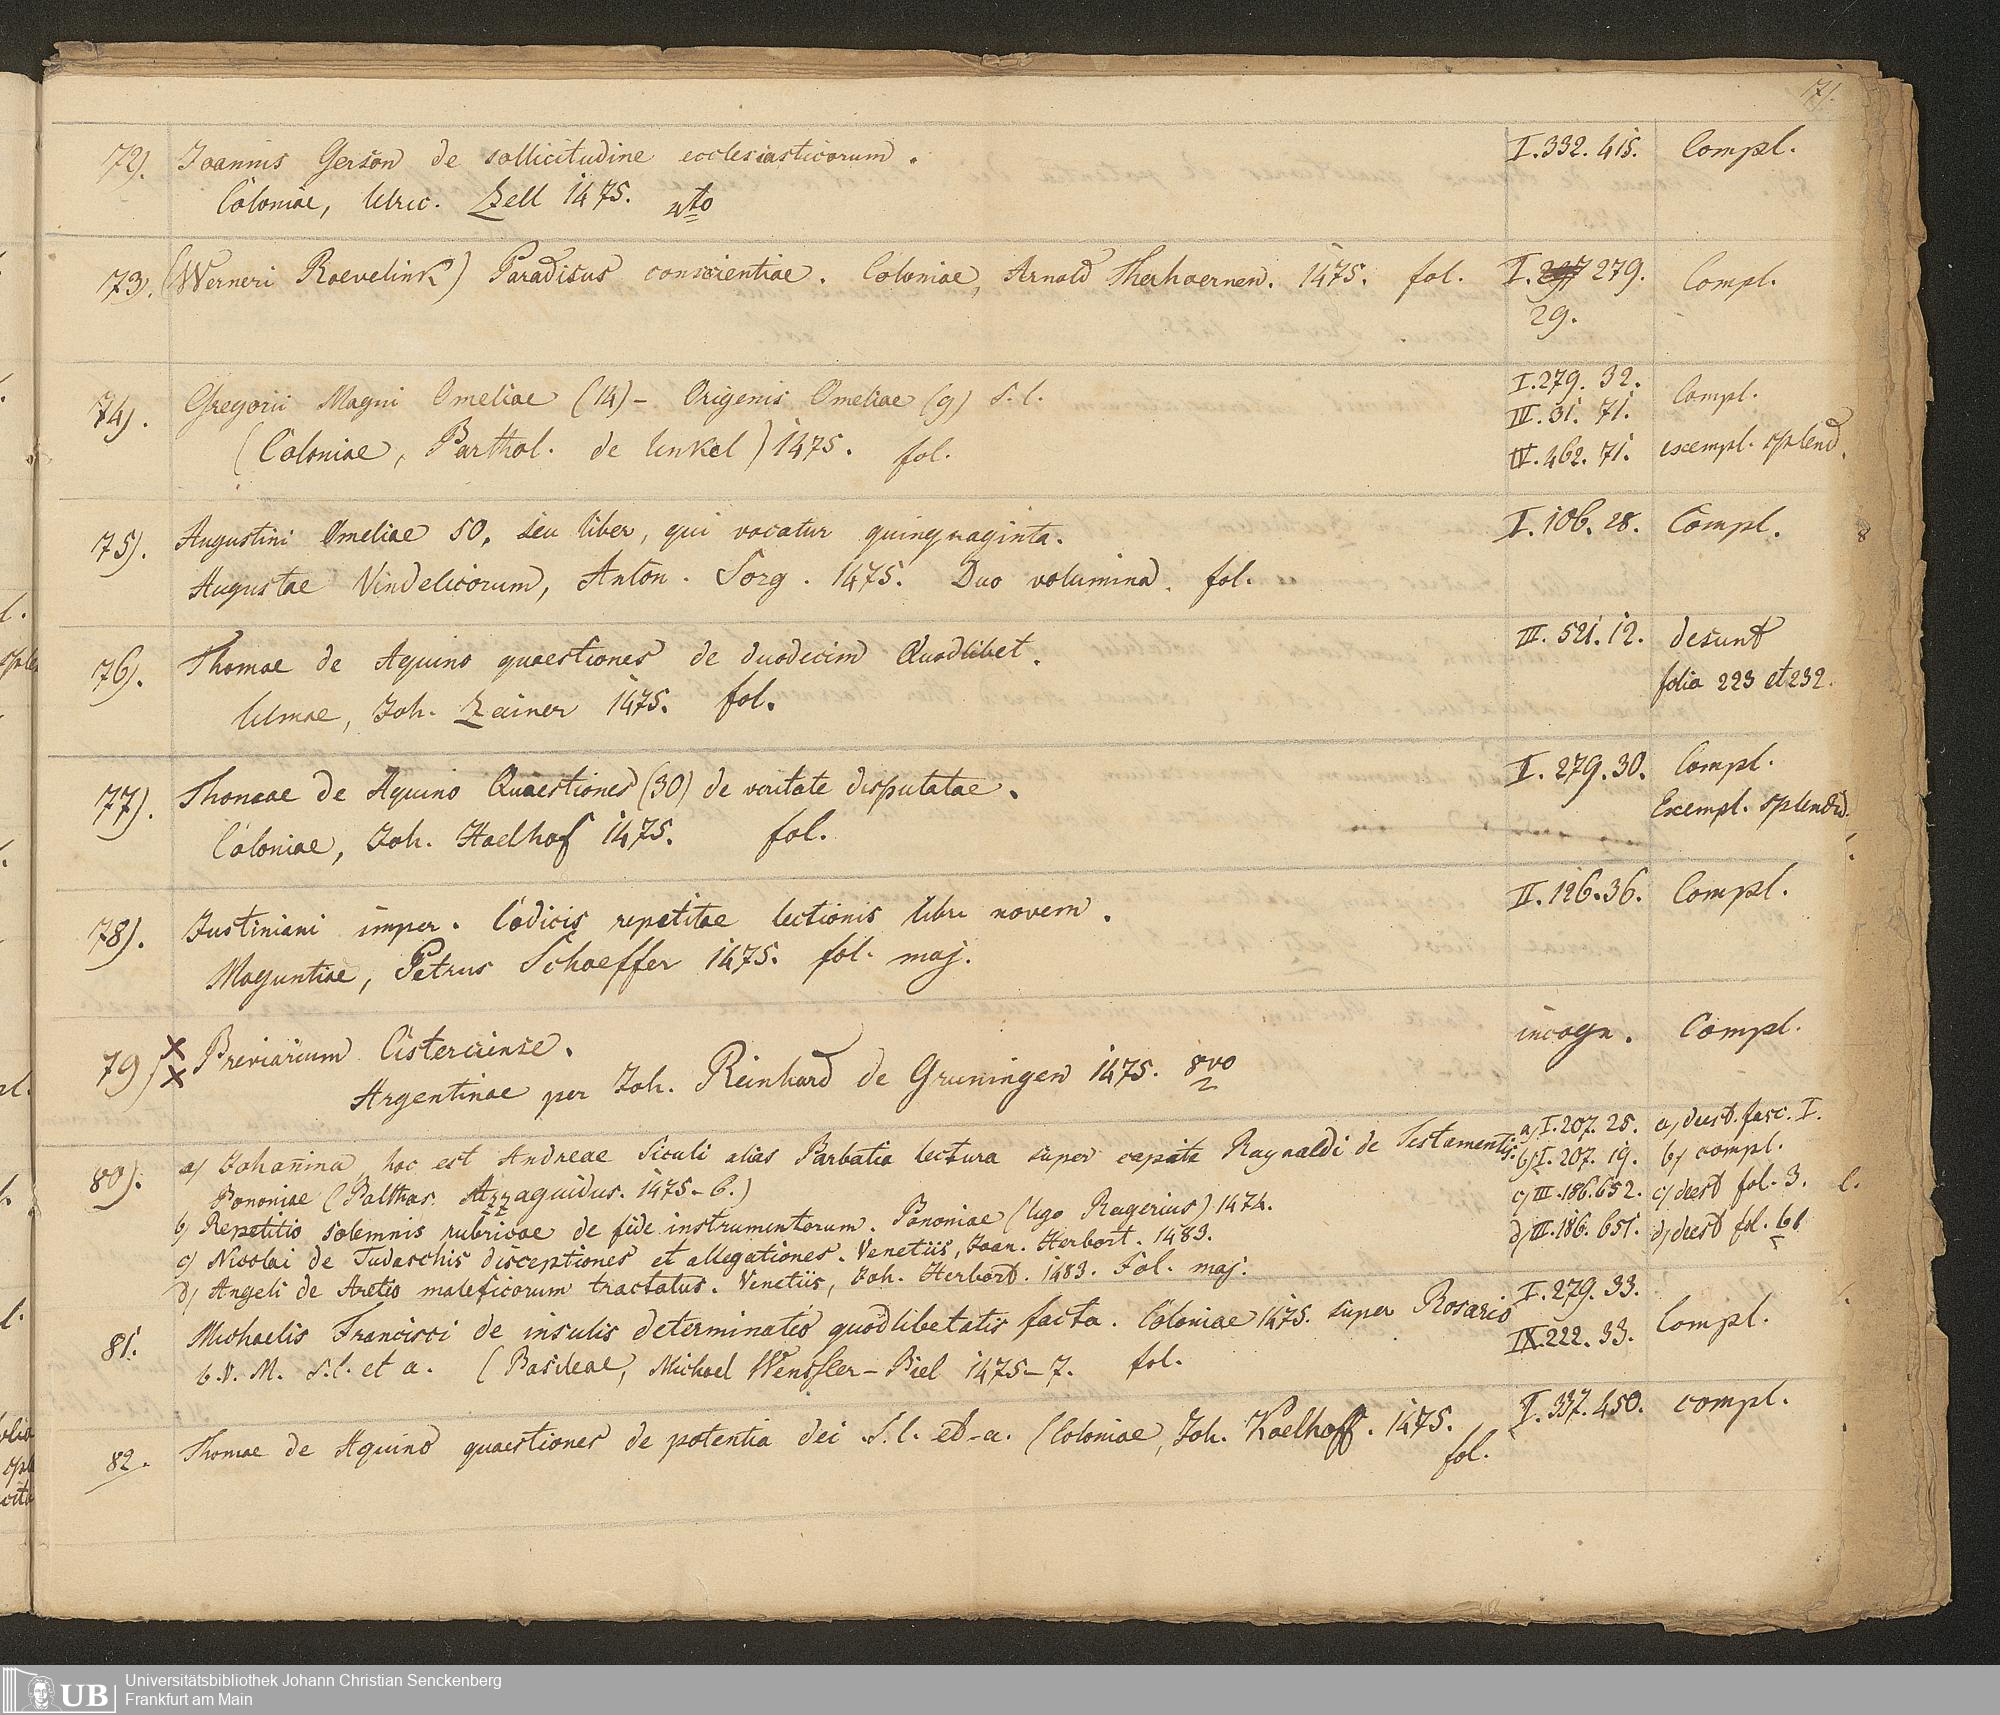 17).
72). Joannis Gerson de sollicitudine ecclesiasticorum. I.332.415. Compl.
Coloniae, Ulric. Zell 1475. 4to
73. (Werneri Roevelink) Paradisus conscientiae. Coloniae, Arnold Therhoernen. 1475. fol. I. 279. Compl.
29.
74). Gregorii Magni Omeliae (14) - Origenis Omeliae (9) s. l. I.279. 32. Compl.
III. 31. 71.
(Coloniae, Barthol. de Unkel) 1475. fol. IV. 462. 71. exempl. splend.
75). Augustini Omeliae 50, seu liber, qui vocatur quinquaginta. I.106. 28. Compl.
Augustae Vindelicorum, Anton. Sorg. 1475. Duo volumina. fol.
76). Thomae de Aquino quaestiones de duodecim Quodlibet. III. 521. 12. desunt
Ulmae, Joh. Zainer 1475. fol. folia 223 et 232.
77). Thomae de Aquino Quaestiones (30) de veritate disputatae. I. 279. 30. Compl.
Coloniae, Joh. Hoelhof 1475. fol. Exempl. splendid.
78). Justiniani imper. Codicis repetitae lectionis libri novem. II. 126. 36. Compl.
Maguntiae, Petrus Schoeffer 1475. fol. maj.
79) x x Breviarium Cisterciense. incogn. Compl.
Argentinae per Joh. Reinhard de Gruningen 1475. 8vo
80). a) Johañina, hoc est Andreae Siculi alias Barbatia lectura super capite Raynaldi de Testamentis. a) I.207. 25. a) deest. fasc. I.
Bononiae (Balthas. Azzaguidus. 1475-6.) b) I. 207. 19. b) compl.
b) Repetitio solemnis rubricae de fide instrumentorum. Bononiae (Ugo Rugerius) 1474. c) III. 186. 652. c) deest fol. 3.
c) Nicolai de Tudaschis disceptiones et allegationes. Venetiis, Joan. Herbort. 1483. d) II. 186. 651. d) deest fol. 61
d) Angeli de Aretio maleficorum tractatus. Venetiis, Joh. Herbort. 1483. Fol. maj.
81. Michaelis Francisci de insulis determinatio quodlibetatis facta. Coloniae 1475. super Rosario I. 279. 33. Compl.
b. V. M. s. l. et a. (Basileae, Michael Wenssler - Biel 1475-7. fol. IX. 222. 33.
82. Thomae de Aquino quaestiones de potentia dei s. l. et a. (Coloniae, Joh. Koelhoff. 1475. I. 337. 450. compl.
fol.
UB Universitätsbibliothek Johann Christian Senckenberg
Frankfurt am Main